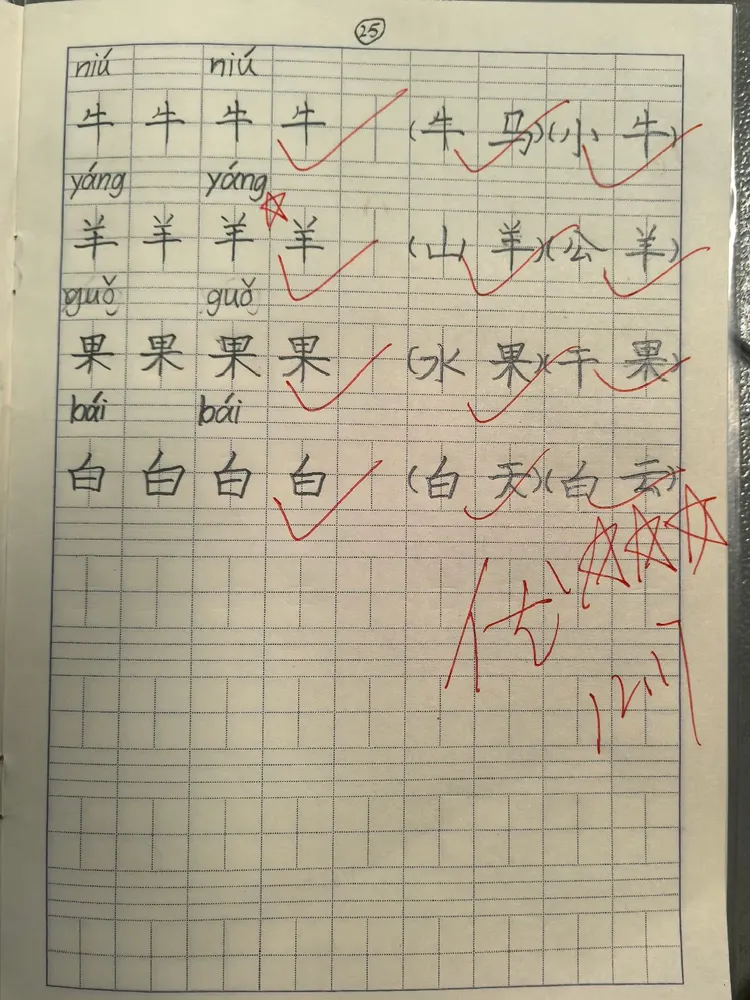 25
niú niú
牛 牛 牛 牛 (牛 马)(小 牛)
yáng yáng
羊 羊 羊 羊 (山 羊)(公 羊)
guǒ guǒ
果 果 果 果 (水 果)(干 果)
bái bái
白 白 白 白 (白 天)(白 云)
优